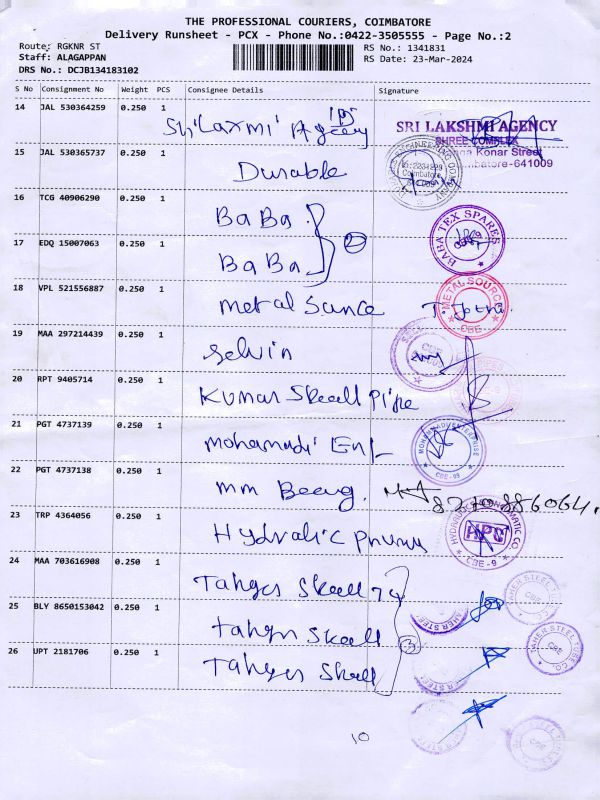 THE PROFESSIONAL COURIERS, COIMBATORE
Delivery Runsheet - PCX - Phone No.:0422-3505555 - Page No.:2
Route: RGKNR ST
RS No.: 1341831
Staff: ALAGAPPAN
RS Date: 23-Mar-2024
DRS No.: DCJB134183102
S No Consignment No Weight PCS Consignee Details Signature
14 JAL 530364259 0.250 1
Sri Laxmi Agency
SRI LAKSHMI AGENCY
SHREE COMPLEX
Konar Street
Coimbatore-641009
15 JAL 530365737 0.250 1
Durable
16 TCG 40906290 0.250 1
BaBa
BABA TEX SPARES
17 EDQ 15007063 0.250 1
BaBa
2
18 VPL 521556887 0.250 1
metal Sance
METAL SOURCE
CBE
19 MAA 297214439 0.250 1
Selvin
20 RPT 9405714 0.250 1
Kumar Skeall Pipe
21 PGT 4737139 0.250 1
mohamadi Ent
MOHAMMADI ENTERPRISE
CBE-09
22 PGT 4737138 0.250 1
mm Beeng.
23 TRP 4364056 0.250 1
Hydralic pnumu
HPC
CBE-9
24 MAA 703616908 0.250 1
Taher Skeall
25 BLY 8650153042 0.250 1
taher Skeall
3
TAHER STEEL TUBE CO
CBE
26 UPT 2181706 0.250 1
Taher Skeall
10